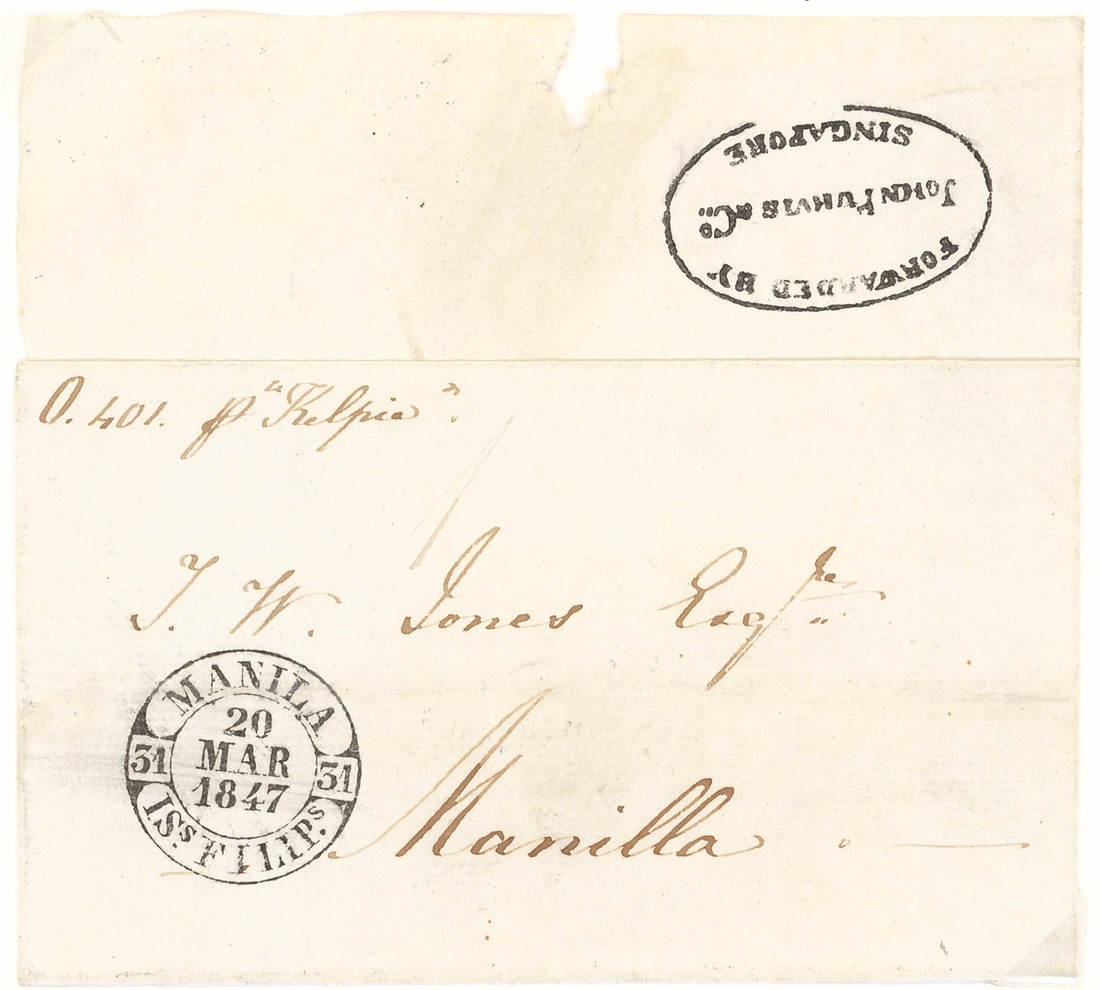 FORWARDED BY
JOHN PURVIS & Co.
SINGAPORE
O. 401. p "Kelpie".
J. W. Jones Esqre
Manilla.
MANILA
20
MAR
1847
31 31
ISs. FILIPs.